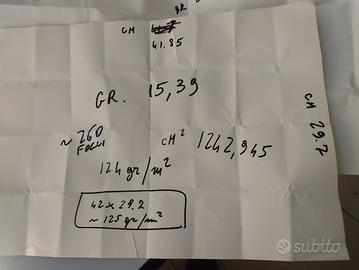 gr
CM
41.85
GR. 15,39
CM 29.7
~260
FOGLI
cm² 1242,945
124 gr/m²
42 x 29.2
~ 125 gr/m²
subito